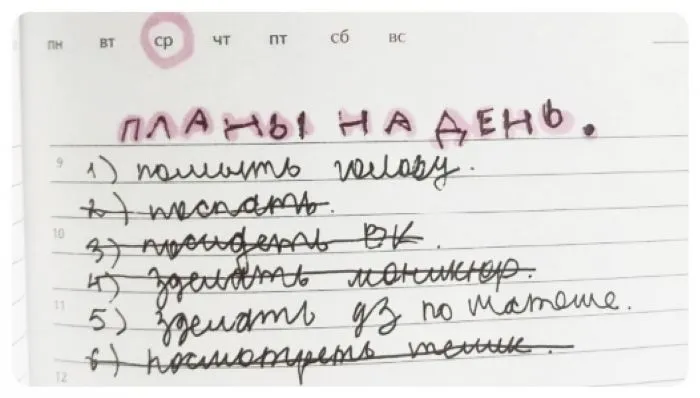 пн вт ср чт пт сб вс
ПЛАНЫ НА ДЕНЬ.
9
1) помыть голову.
2) поспать.
10
3) посидеть ВК.
4) зделать маникюр.
11
5) зделать дз по матеше.
6) посмотреть телик.
12